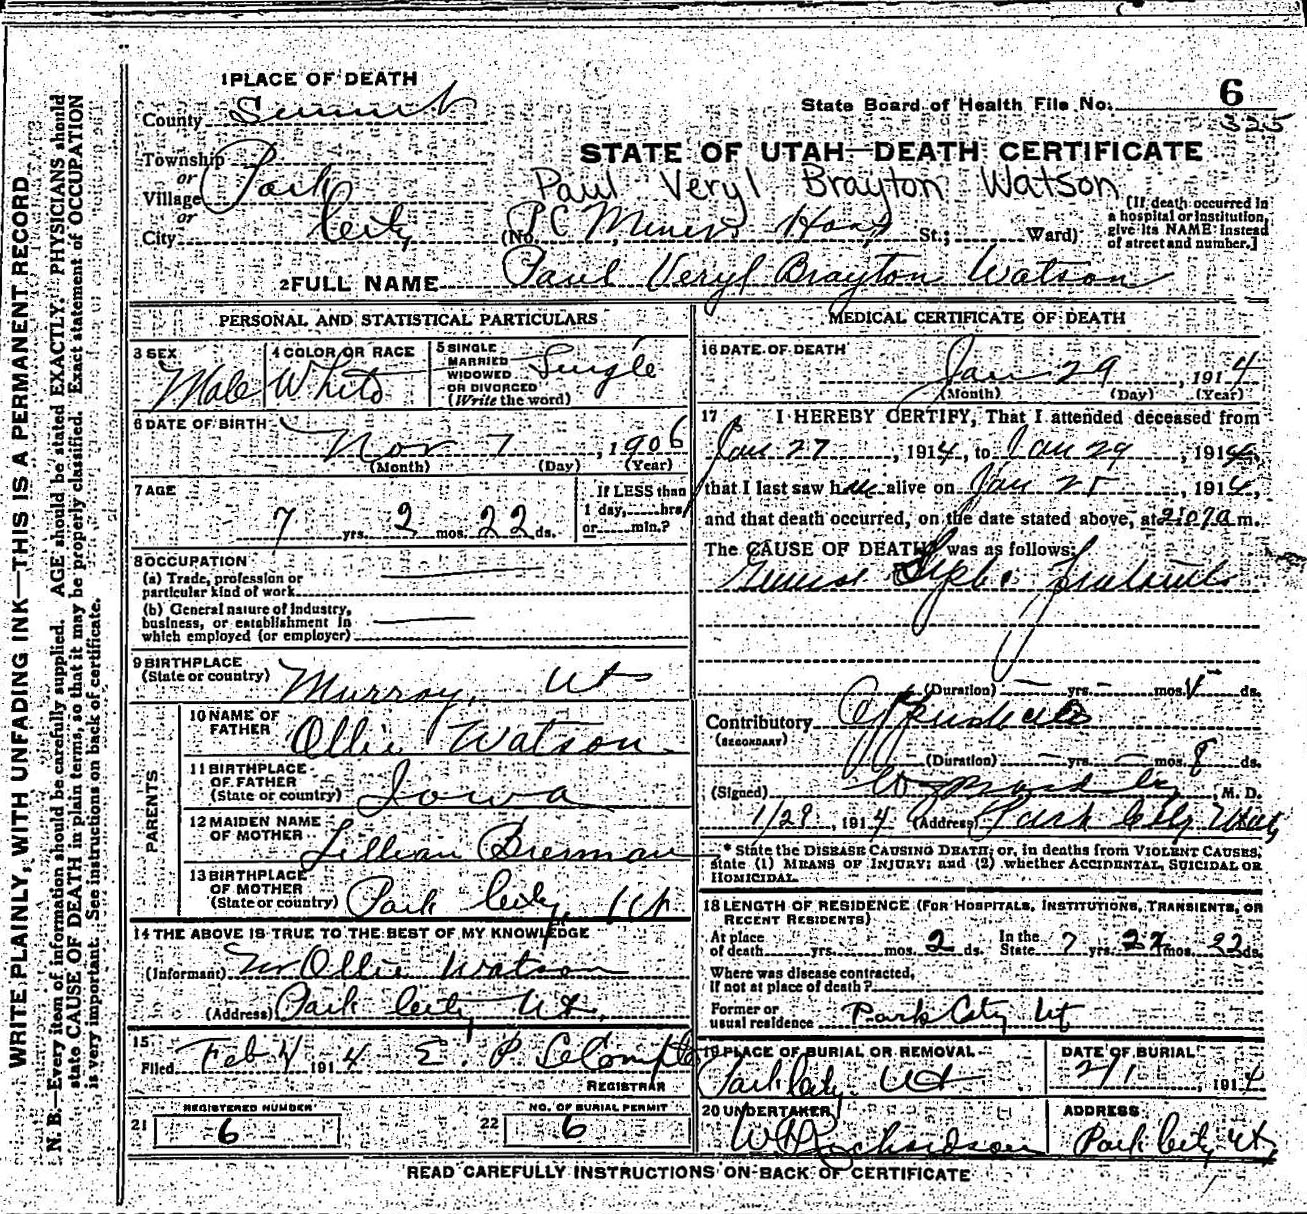 1 PLACE OF DEATH
County Summit
State Board of Health File No. 6
325
Township
or
Village Park
or
City City
STATE OF UTAH—DEATH CERTIFICATE
Paul Veryl Brayton Watson
(No. P C Miners Hosp St.; Ward)
[If death occurred in
a hospital or institution,
give its NAME instead
of street and number.]
2 FULL NAME Paul Veryl Brayton Watson
PERSONAL AND STATISTICAL PARTICULARS
3 SEX
Male
4 COLOR OR RACE
White
5 SINGLE
MARRIED
WIDOWED
OR DIVORCED
(Write the word)
Single
6 DATE OF BIRTH
Nov 7, 1906
(Month) (Day) (Year)
7 AGE
7 yrs. 2 mos. 22 ds.
If LESS than
1 day, hrs.
or min.?
8 OCCUPATION
(a) Trade, profession or
particular kind of work
(b) General nature of industry,
business, or establishment in
which employed (or employer)
9 BIRTHPLACE
(State or country) Murray, Ut
PARENTS
10 NAME OF
FATHER Ollie Watson
11 BIRTHPLACE
OF FATHER
(State or country) Iowa
12 MAIDEN NAME
OF MOTHER Lillian
13 BIRTHPLACE
OF MOTHER
(State or country) Park City, Ut
14 THE ABOVE IS TRUE TO THE BEST OF MY KNOWLEDGE
(Informant) Ollie Watson
(Address) Park City Ut.
15
Filed Feb 4 1914 E. P. LeCompte
REGISTRAR
REGISTERED NUMBER
21 6
NO. OF BURIAL PERMIT
22 6
MEDICAL CERTIFICATE OF DEATH
16 DATE OF DEATH
Jan 29, 1914
(Month) (Day) (Year)
17 I HEREBY CERTIFY, That I attended deceased from
Jan 27, 1914, to Jan 29, 1914,
that I last saw him alive on Jan, 1914,
and that death occurred, on the date stated above, at m.
The CAUSE OF DEATH was as follows:
(Duration) yrs. mos. ds.
Contributory
(SECONDARY)
(Duration) yrs. mos. 8 ds.
(Signed), M. D.
1/29, 1914 (Address) Park City Utah
* State the DISEASE CAUSING DEATH; or, in deaths from VIOLENT CAUSES,
state (1) MEANS OF INJURY; and (2) whether ACCIDENTAL, SUICIDAL OR
HOMICIDAL.
18 LENGTH OF RESIDENCE (FOR HOSPITALS, INSTITUTIONS, TRANSIENTS, OR
RECENT RESIDENTS)
At place
of death yrs. mos. 2 ds.
In the
State 7 yrs. 2 mos. 22 ds.
Where was disease contracted,
if not at place of death?
Former or
usual residence Park City Ut
19 PLACE OF BURIAL OR REMOVAL
Park City Ut
DATE OF BURIAL
2/1, 1914
20 UNDERTAKER
W H Richardson
ADDRESS
Park City Ut
READ CAREFULLY INSTRUCTIONS ON BACK OF CERTIFICATE
WRITE PLAINLY, WITH UNFADING INK—THIS IS A PERMANENT RECORD
N. B.—Every item of information should be carefully supplied. AGE should be stated EXACTLY. PHYSICIANS should
state CAUSE OF DEATH in plain terms, so that it may be properly classified. Exact statement of OCCUPATION
is very important. See instructions on back of certificate.